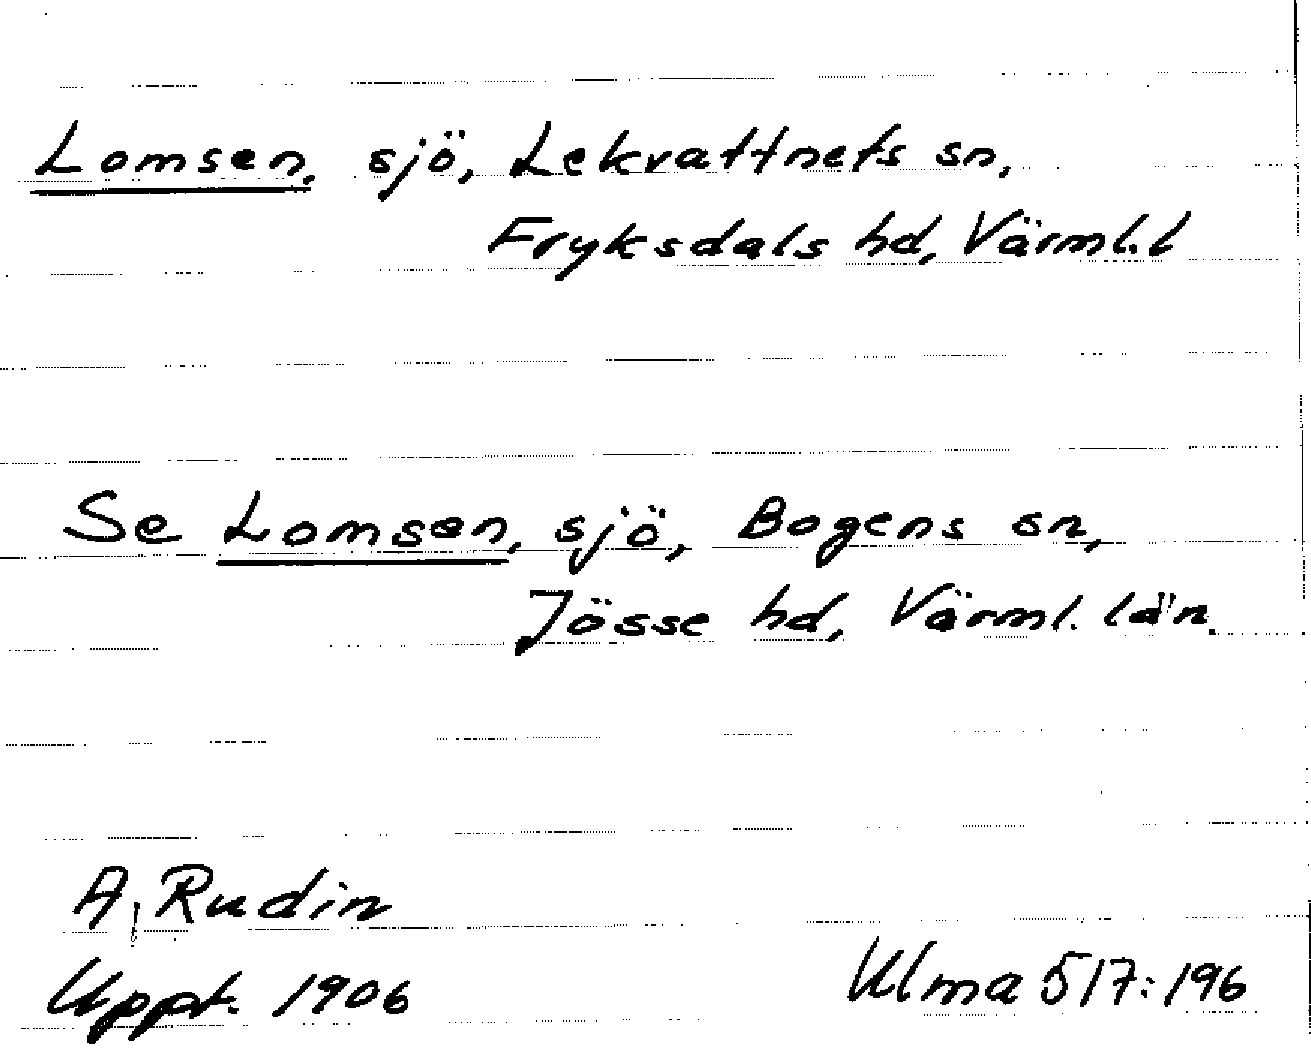 Lomsen, sjö, Lekvattnets sn,
Fryksdals hd, Värml. l
Se Lomsen, sjö, Bogens sn,
Jösse hd, Värml. län.
A. Rudin
Uppt. 1906
Ulma 517:196